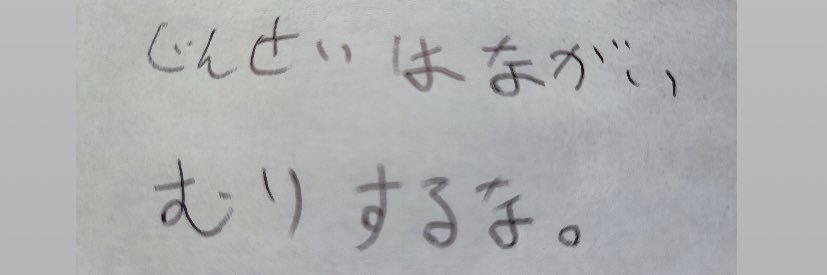 じんせいはながい、
むりするな。